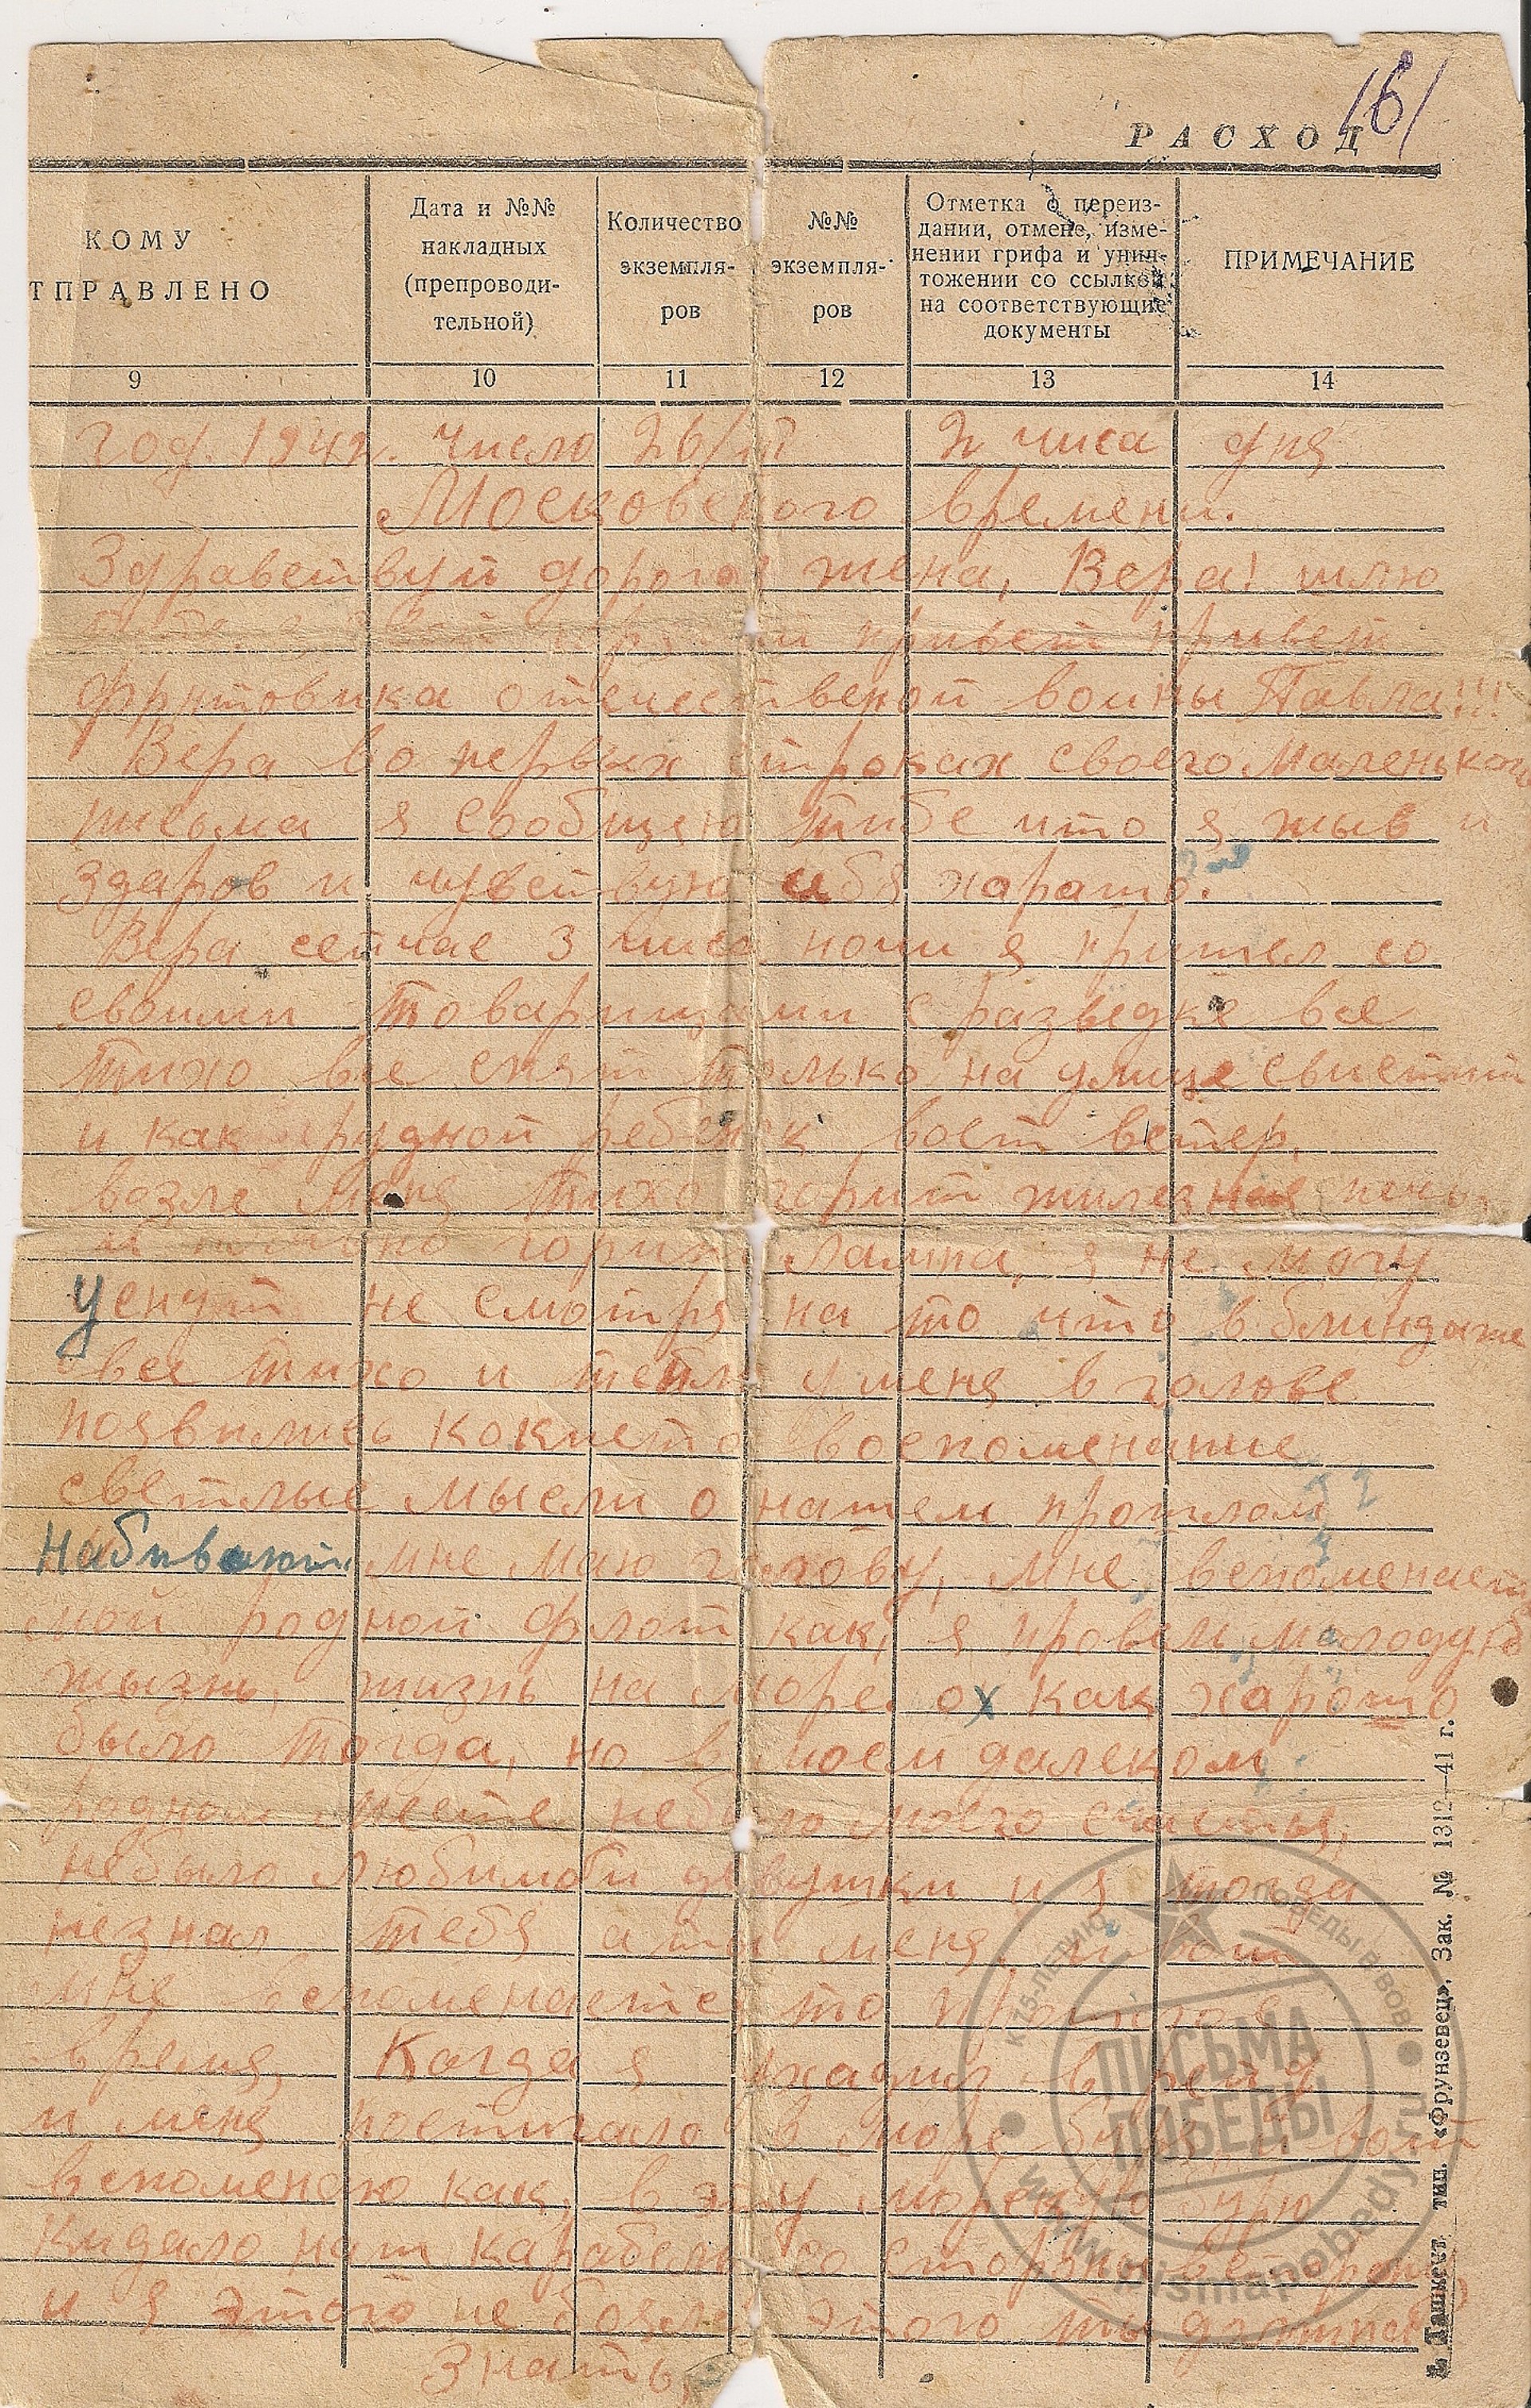 161
РАСХОД
КОМУ
ТПРАВЛЕНО
Дата и №№
накладных
(препроводи-
тельной)
Количество
экземпля-
ров
№№
экземпля-
ров
Отметка о переиз-
дании, отмене, изме-
нении грифа и унич-
тожении со ссылкой
на соответствующие
документы
ПРИМЕЧАНИЕ
9 10 11 12 13 14
год. 1942г. число 26/III 2 часа дня
Московского времени.
Здравствуй дорогая жена, Вера! шлю
привет привет
фрнтовика отечественой войны Павла!!!
Вера во первых строках своего маленького
письма я сообщаю тибе что я жыв и
здаров и чувствую себя харашо.
Вера сейчас 3 часа ночи я пришел со
своими товарищами с разведке все
тихо все спят только на улице свистит
и как грудной ребенок воет ветер,
возле меня тихо горит жилезная печь
и горит лампа, я не могу
уснут не смотря на то что в блиндаже
все тихо и тепло у меня в голове
появились кокието воспоменание
светлые мысли о нашем прошлом
набивают мне маю голову, мне вспоменается
мой родной флот как, я провел молодую
жызнь, жизнь на море ох как харошо
было тогда, но в моем далеком
родном месте небыло моего счастья,
небыло любимой девушки и я тогда
незнал тебя а ты меня, и вот
мне вспоменается то прошлое
время, Когда я хадил в рейд
и меня постигало в море буря, и вот
вспоменаю как, в эту морскую бурю
кидало наш карабель со стороны в сторону,
и я этого не боялся этого ты должна
знать,
г. Ташкент тип. «Фрунзевец». Зак. № 1312—41 г.
К 75-ЛЕТИЮ ПОБЕДЫ В ВОВ
ПИСЬМА
ПОБЕДЫ
www.pismapobedy.ru